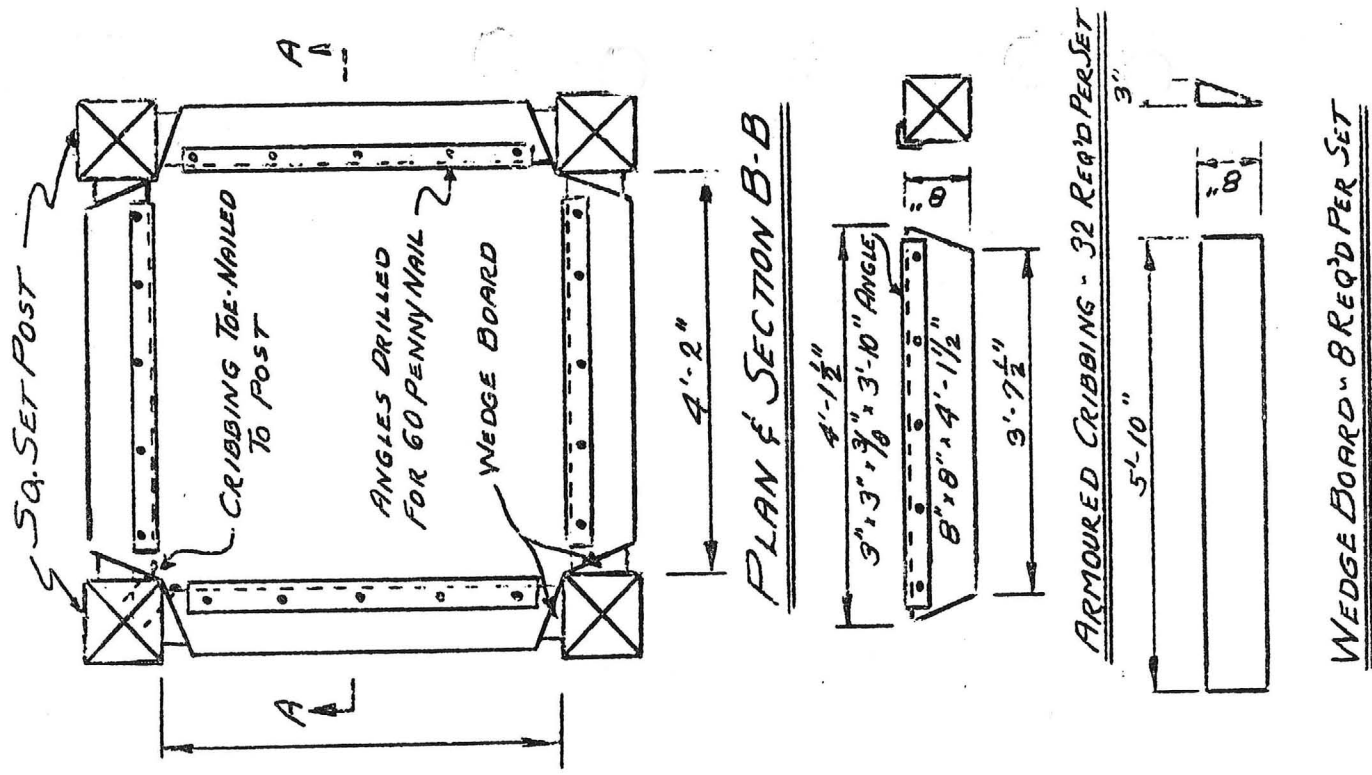 SQ. SET POST
A
A
CRIBBING TOE-NAILED
TO POST
ANGLES DRILLED
FOR 60 PENNY NAIL
WEDGE BOARD
4'-2"
PLAN & SECTION B-B
4'-1½"
3" x 3" x 3/8" x 3'-10" ANGLE
8" x 8" x 4'-1½"
3'-7½"
8"
ARMOURED CRIBBING - 32 REQ'D PER SET
5'-10"
8"
3"
WEDGE BOARD - 8 REQ'D PER SET